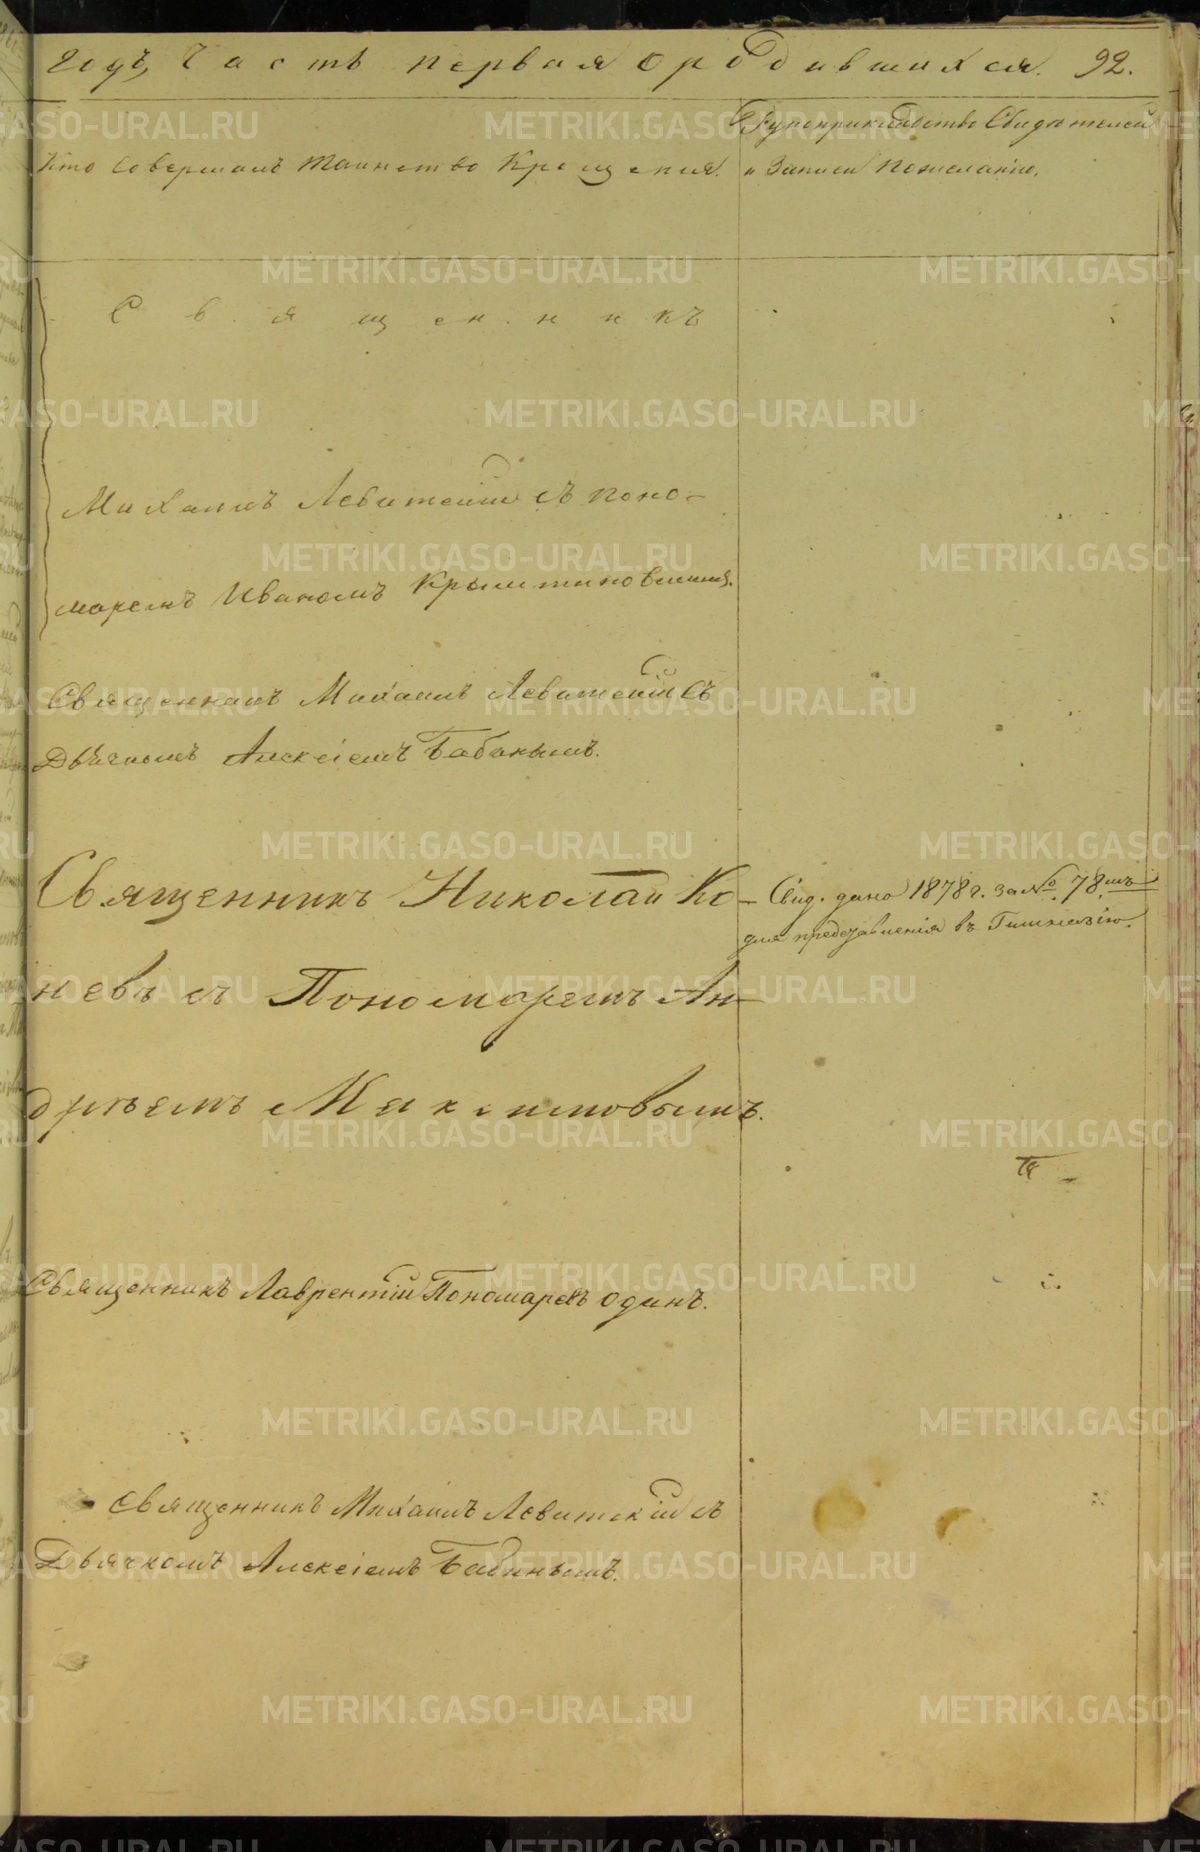 годъ, Часть первая о родившихся. 92.
Кто совершалъ таинство Крещенія.
Рукоприкладство Свидѣтелей
и Записи пожеланію.
Священникъ
Михаилъ Левитскій съ поно-
маремъ Иваномъ
Священникъ Михаилъ Левитскій съ
Дьячкомъ Алексіемъ Бабинымъ.
Священникъ Николай Ко-
невъ съ Пономаремъ Ан-
дреемъ Максимовымъ.
Свид. дано 1878 г. за № 78мъ
для представленія въ Гимназію.
Священникъ Лаврентій Пономаревъ одинъ.
Священникъ Михаилъ Левитскій съ
Дьячкомъ Алексіемъ Бабинымъ.
METRIKI.GASO-URAL.RU